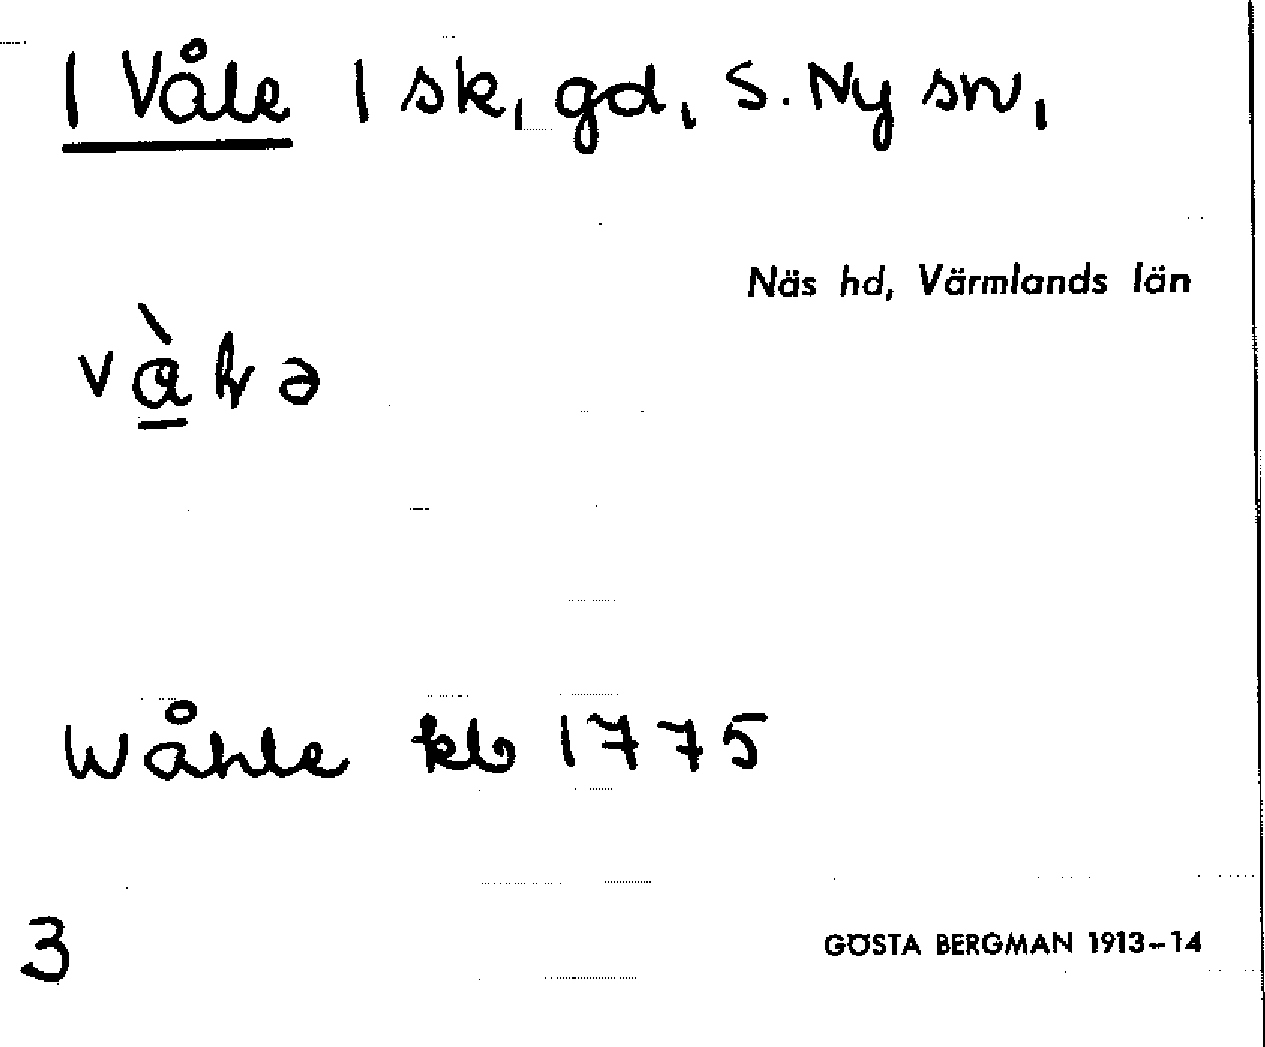 1 Våle 1 sk, gd, S. Ny sn,
Näs hd, Värmlands län
Wåhle kb 1775
3
GÖSTA BERGMAN 1913-14